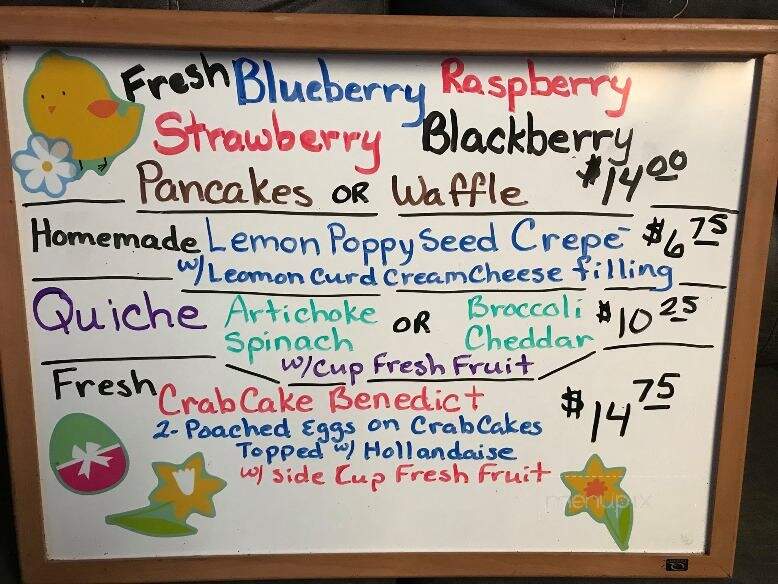 Fresh Blueberry Raspberry
Strawberry Blackberry
Pancakes OR Waffle $14.00
Homemade Lemon Poppy Seed Crepe $6.75
w/ Leomon Curd Cream Cheese filling
Quiche Artichoke OR Broccoli $10.25
Spinach Cheddar
w/ Cup Fresh Fruit
Fresh Crab Cake Benedict $14.75
2- Poached Eggs on Crab Cakes
Topped w/ Hollandaise
w/ side Cup Fresh Fruit
menupix